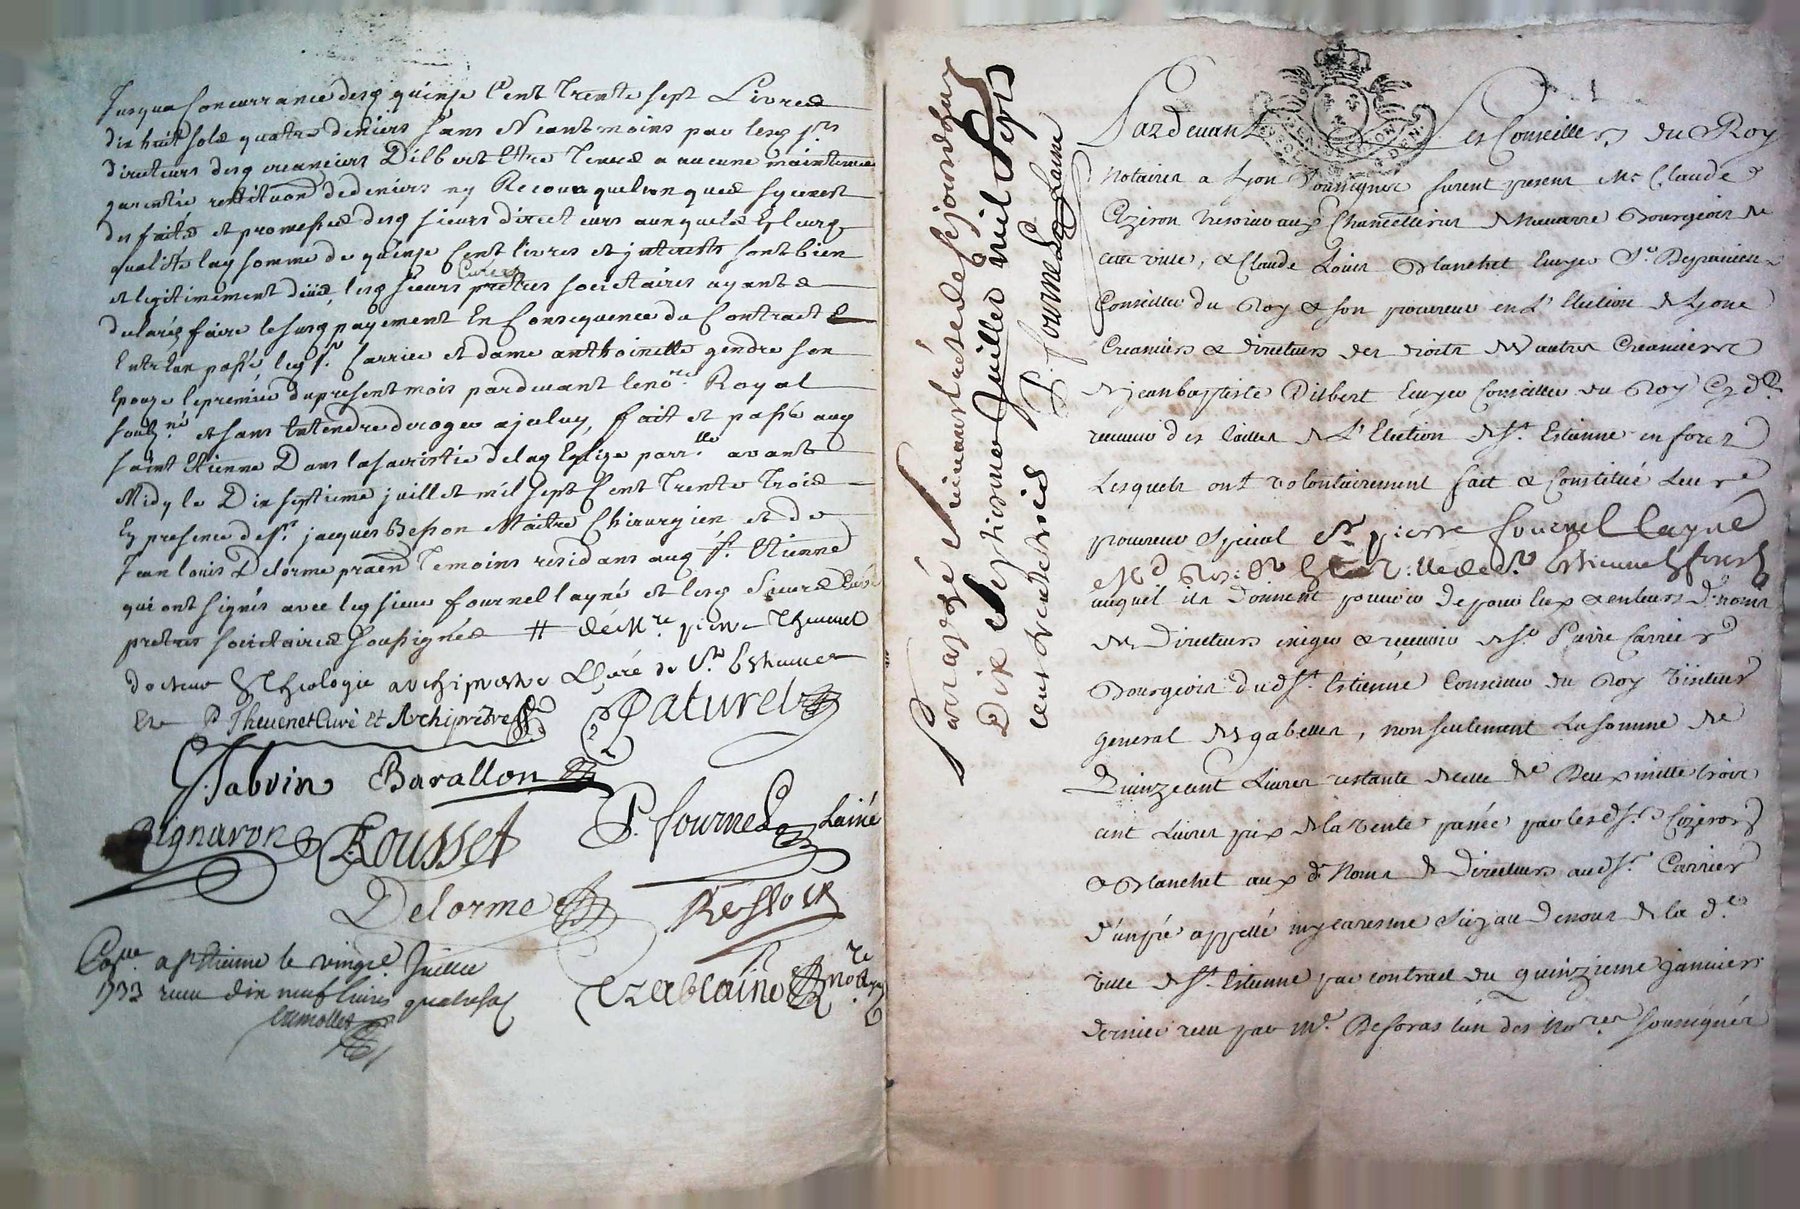 Jusqua Concurrance desq quinze Cent Trente sept Livres
dix huit sols quatre deniers sans Neantmoins que lesq srs
directeurs desq creanciers Dilbert Etre Tenus a aucune maintenue
garentie restituôn de deniers ny Recours quelconques sy ce nest
de faits et promesses desq sieurs directeurs auxquels Esleurs
qualités laq somme de quinze Cent livres et jnterests sont bien
et legitimement düe, lesq sieurs Curé et prêtres societaires ayants
declarés faire le susq payement En Consequence du Contract
Entreux passé leq sr. Carrier et dame anthoinette gendre son
Epouze le premier du present mois pardevant le nore. Royal
soubzné et sans Entendre deroger a jceluy, fait et passé auq
saint Etienne Dans la sacristie delaq Eglize parrlle avant
Midy le Dix septieme juillet mil sept Cent Trente Trois
En presence de sr. jacques Besson Maitre Chirurgien et de
Jean louis Delorme praèn Temoins residans auq st. Etienne
qui ont signés avec leq sieur fournel layné et lesq Sieurs Curé
pretres societaires soussignés # de Mre pierre Thevenet
docteur En Theologie archiprestre Curé de St. Estienne
P Thevenet Curé et Archiprêtre
Paturel
G. Jabvin Barallon
Pignaron Rousset P. fournel Lainé
Delorme Besson
Conlle. a st Etienne le vingt. Juillet
1733 receu dix neuf livres quatre sols
Ezablaine nore Royal
Paraphé Ne varietur le sejourdhuy
Dix Septiesme Juillet mil Sept
cent trente trois P. fournel Lainé
Pardevant Les Conseillers du Roy
Notaires a Lyon Soussignés furent presens Mr. Claude
Cizeron Tresorier aux Chancelleries de Navarre Bourgeois de
cette ville, & Claude Louis Blanchet Ecuyer Sr.
Conseiller du Roy & son procureur en L'Election de Lyon
Creanciers & directeurs des droits des autres Creanciers
de jean baptiste Dilbert Ecuyer Conseiller du Roy Cy dt.
receveur des tailles de L'Election de St. Estienne en forez
Lesquels ont volontairement fait & Constitué Leur
procureur Special Sr. pierre fournel layné
auquel ils donnent pouvoir de pour Eux & en leurs d. noms
de Directeurs exiger & recevoir de Sr. Pierre Carrier
Bourgeois dud St. Estienne Conseiller du Roy Visiteur
General des gabelles, non seulement La somme de
Quinze cent Livres restante de celle de Deux mille trois
cent Livres prix de la vente passée par lesd Srs. Cizeron
& Blanchet aux d. Noms de Directeurs aud Sr. Carrier
d'un pré appellé mycaresme situé au dehors de la de.
ville de St. Estienne par contract du quinzieme janvier
dernier receu par Me. Deforas l'un des Nores Soussignés